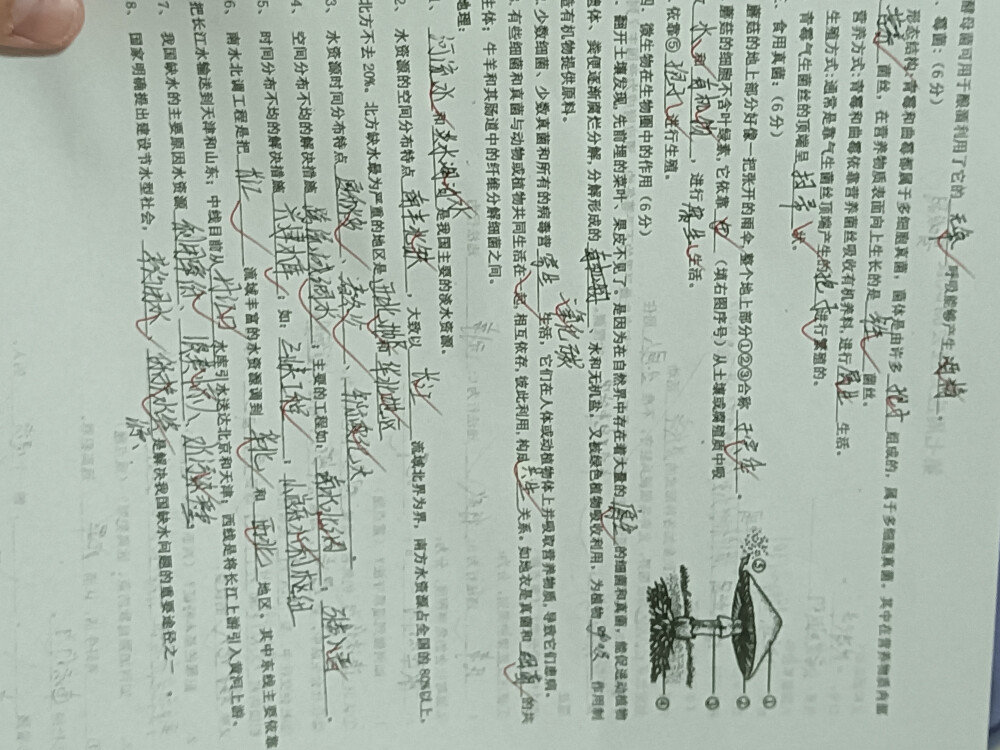 酵母菌可用于酿酒利用了它的 无氧 呼吸能够产生 酒精 。
、霉菌：（6 分）
形态结构：青霉和曲霉都属于多细胞真菌，菌体是由许多 组成的，属于多细胞真菌。其中在营养物质内部
菌丝，在营养物质表面向上生长的是 菌丝。
营养方式：青霉和曲霉依靠营养菌丝吸收有机养料，进行 腐生 生活。
生殖方式：通常是靠气生菌丝顶端产生的 孢子 进行繁殖的。
青霉气生菌丝的顶端呈 扫帚 状。
、食用真菌：（6 分）
蘑菇的地上部分好像一把张开的雨伞，整个地上部分①②③合称 子实体 。
蘑菇的细胞不含叶绿素，它依靠 ④ （填右图序号）从土壤或腐殖质中吸
水 和 有机物 ，进行 腐生 生活。
依靠⑤ 孢子 进行生殖。
①
②
③
④
⑤
四 微生物在生物圈中的作用（6 分）
翻开土壤发现，先前埋的菜叶、果皮不见了。是因为在自然界中存在着大量的 腐生 的细菌和真菌，能促进动植物
遗体、粪便逐渐腐烂分解，分解形成的 、水和无机盐，又被绿色植物吸收利用，为植物 作用制
造有机物提供原料。
二氧化碳
少数细菌、少数真菌和所有的病毒营 寄生 生活，它们在人体或动植物体上并吸取营养物质，导致它们患病。
有些细菌和真菌与动物或植物共同生活在一起，相互依存，彼此利用，构成 共生 关系。如地衣是真菌和 的共
生体；牛羊和其肠道中的纤维分解细菌之间。
地理：
1、 河流水 和 淡水湖泊水 是我国主要的淡水资源。
2、水资源的空间分布特点 南丰北缺 ，大致以 长江 流域北界为界，南方水资源占全国的 80%以上，
北方不去 20%。北方缺水最为严重的地区是 华北地区
3、水资源时间分布特点 夏秋多 、 冬春少 、 年际变化大 。
空间分布不均的解决措施 跨流域调水 ；主要的工程如： 南水北调 ； 。
4、时间分布不均的解决措施 兴建水库 ；如： 三峡工程 ； 小浪底水利枢纽
5、
6、南水北调工程是把 长江 流域丰富的水资源调到 华北 和 西北 地区。其中东线主要依靠
把长江水输送到天津和山东；中线目前从 丹江口 水库引水送达北京和天津；西线是将长江上游引入黄河上游。
7、我国缺水的主要原因水资源 利用率低 、 浪费 、 水污染严重
8、国家明确提出建设节水型社会， 节约用水 ， 是解决我国缺水问题的重要途径之一 。